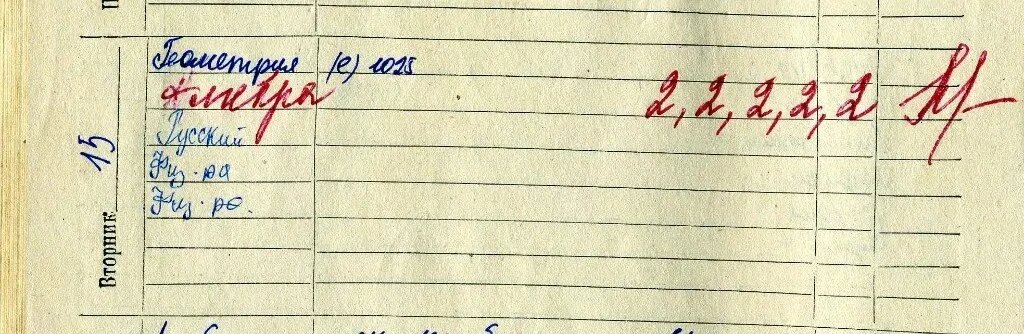 Вторник
15
Геометрия (е) 1025
Алгебра 2, 2, 2, 2, 2
Русский
Физ-ра
Физ-ра.